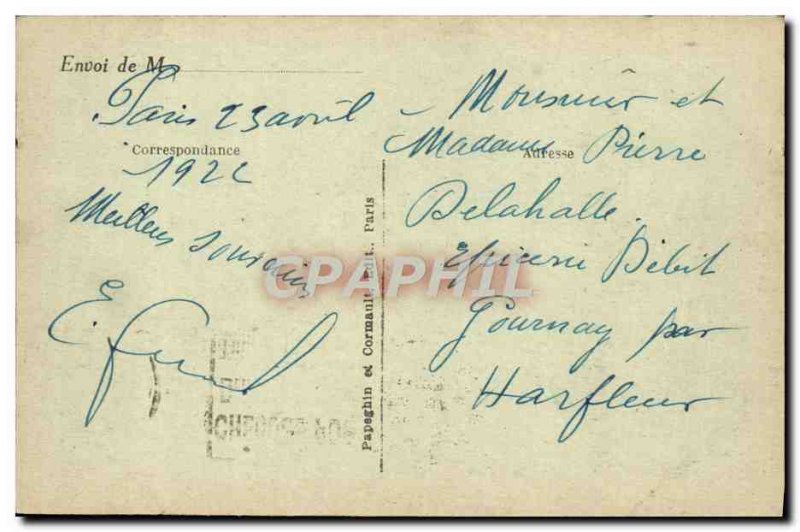 Envoi de M
Paris 23 avril
Correspondance
1922
Meilleurs souvenirs
E.
Papeghin et Cormault, Edit., Paris
Monsieur et
Madame Pierre
Adresse
Delahalle
Epicerie Débit
Gournay par
Harfleur
CPAPHIL